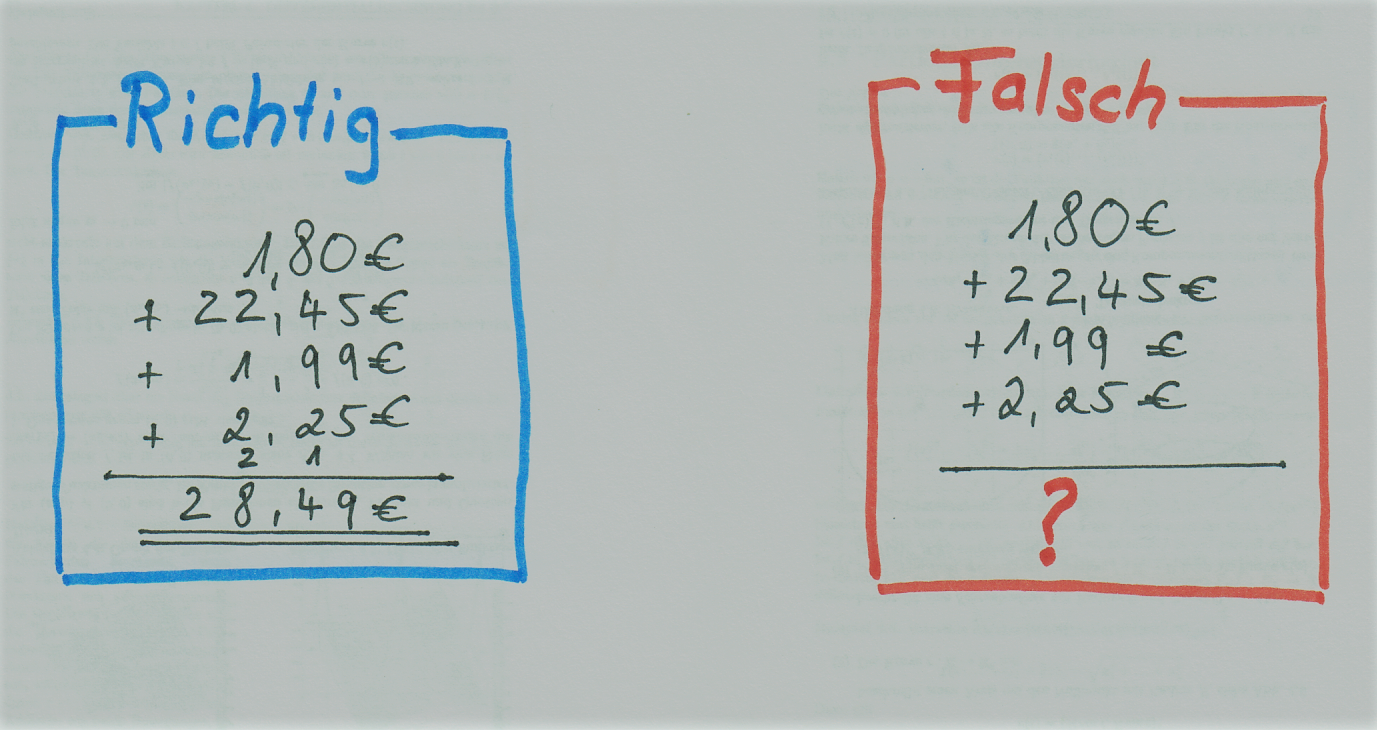 Richtig
1,80€
+ 22,45€
+ 1,99€
+ 2,25€
2 1
28,49€
Falsch
1,80€
+22,45€
+1,99 €
+2,25€
?